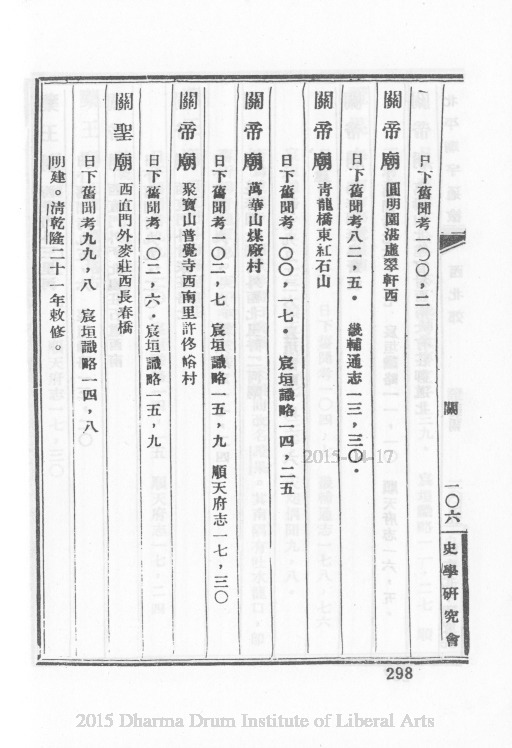 日下舊聞考一〇〇，二
關帝廟 圓明園湛虛翠軒西
日下舊聞考八二，五。 畿輔通志一三，三〇。
關帝廟 青龍橋東紅石山
日下舊聞考一〇〇，一七。 宸垣識略一四，二五
關帝廟 萬華山煤廠村
日下舊聞考一〇二，七 宸垣識略一五，九 順天府志一七，三〇
關帝廟 聚寶山普覺寺西南里許佟峪村
日下舊聞考一〇二，六。宸垣識略一五，九
關聖廟 西直門外麥莊西長春橋
日下舊聞考九九，八 宸垣識略一四，八〇
明建。清乾隆二十一年敕修。
關 一〇六
史學研究會
298
2015-04-17
2015 Dharma Drum Institute of Liberal Arts